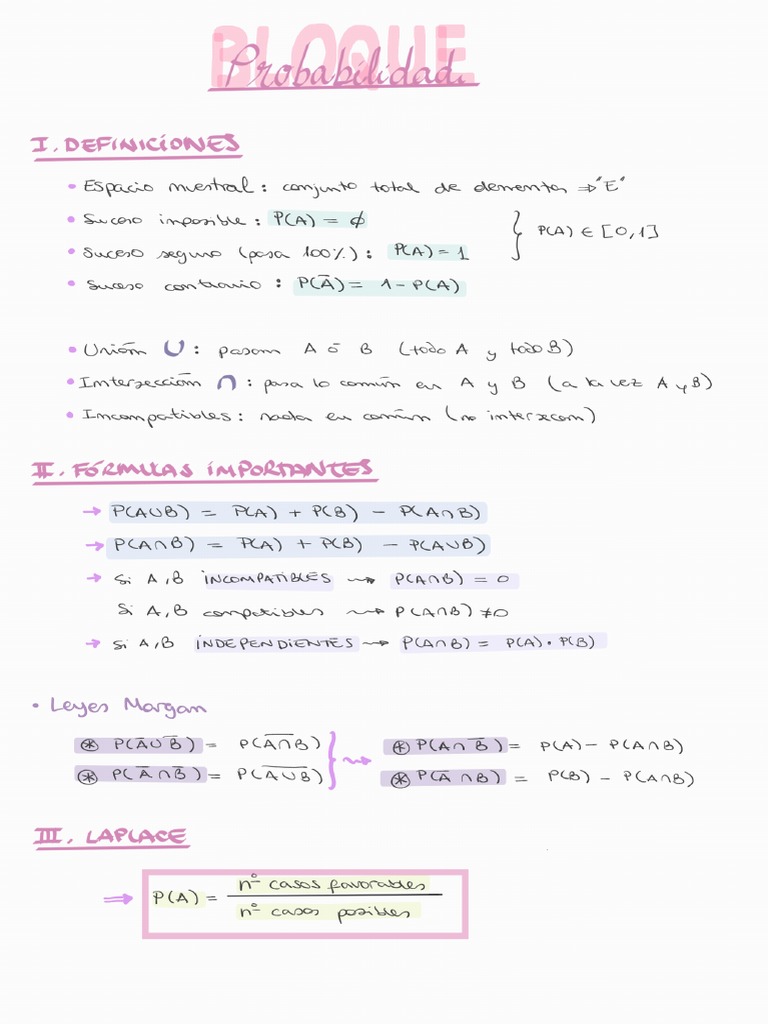 BLOQUE
Probabilidad.
I. DEFINICIONES
• Espacio muestral: conjunto total de elementos ⇒ "E"
• Suceso imposible: P(A) = ∅
• Suceso seguro (pasa 100%): P(A) = 1
} P(A) ∈ [0,1]
• Suceso contrario: P(A̅) = 1 - P(A)
• Unión ∪: pasan A ó B (todo A y todo B)
• Intersección ∩: pasa lo común en A y B (a la vez A y B)
• Incompatibles: nada en común (no intersecan)
II. FÓRMULAS IMPORTANTES
→ P(A∪B) = P(A) + P(B) - P(A∩B)
→ P(A∩B) = P(A) + P(B) - P(A∪B)
→ Si A,B INCOMPATIBLES ⇝ P(A∩B) = 0
Si A,B compatibles ⇝ P(A∩B) ≠ 0
→ Si A,B INDEPENDIENTES ⇝ P(A∩B) = P(A) · P(B)
• Leyes Morgan
⊛ P(A̅∪B̅) = P(A̅∩̅B̅) } ⇝ ⊛ P(A∩B̅) = P(A) - P(A∩B)
⊛ P(A̅∩B̅) = P(A̅∪̅B̅) ⊛ P(A̅∩B) = P(B) - P(A∩B)
III. LAPLACE
⇒ P(A) = nº casos favorables
nº casos posibles